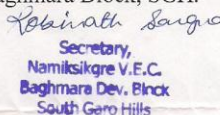 Baghmara Block, SGH.
Secretary,
Namiksikgre V.E.C.
Baghmara Dev. Block
South Garo Hills